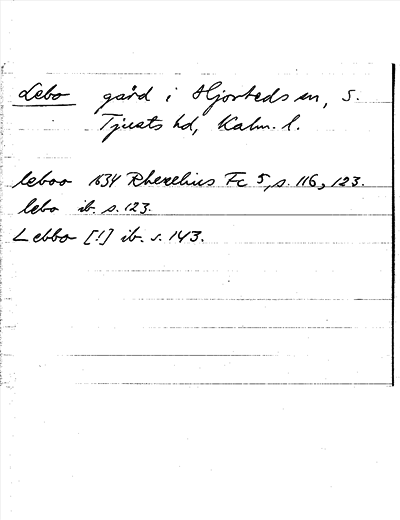 Lebo gård i Hjorteds sn, S.
Tjusts hd, Kalm. l.
leboo 1634 Rhezelius Fc 5, s. 116, 123.
lebo ib. s. 123.
Lebbo [!] ib. s. 143.